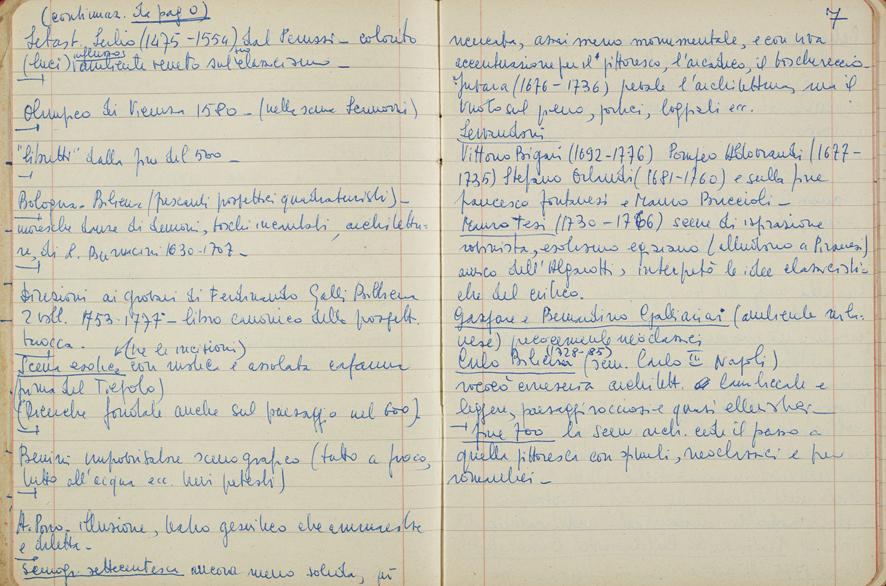 (continuaz. da pag 0)
Sebast. Serlio (1475-1554) dal Peruzzi - colorito
(luci) influssi ambiente veneto sul classicismo -
Olimpico di Vicenza 1580 - (nelle scene Scamozzi)
"libretti" dalla fine del 500 -
Bologna - Bibiena (precedenti prospettici quadraturisti) -
moresche danze di demoni, boschi incantati, architettu-
re, di L. Burnacini 1636-1707 -
Direzioni ai giovani di Ferdinando Galli Bibiena
2 voll. 1753-1777 - libro canonico della prospett.
barocca. (tre le incisioni)
Scena esotica con mistica e assolata
prima del Tiepolo)
(Ricerche fondate anche sul paesaggio nel 600)
Bernini improvvisatore scenografico (tutto a fuoco,
tutto all'acqua ecc.
A. Pozzo - illusione, teatro gesuitico che ammaestra
e diletta -
Scenogr. settecentesca ancora meno solida, più
7
assai meno monumentale, e con una
accentuazione per il pittoresco, l'arcadico, il boschereccio -
Juvara (1676-1736) prevale l'architettura, ma il
vuoto sul pieno, portici, loggiati ecc.
Servandoni
Vittorio Bigari (1692-1776) Pompeo Aldrovandi (1677-
1735) Stefano Orlandi (1681-1760) e sulla fine
Francesco Fontanesi e Mauro Braccioli -
Mauro Tesi (1730-1766) scene di ispirazione
rovinista, esotismo egiziano (alludono a Piranesi)
amico dell'Algarotti, interpretò le idee classicisti-
che del critico.
Gaspare e Bernardino Galliari (ambiente mila-
nese) precocemente neoclassici
Carlo Bibiena (1728-85) (scen. Carlo III Napoli)
rococò architett. lambiccate e
leggere, paesaggi rocciosi e quasi
fine 700 la scen. arch. cede il passo a
quella pittoresca con spunti, neoclassici e pre
romantici -